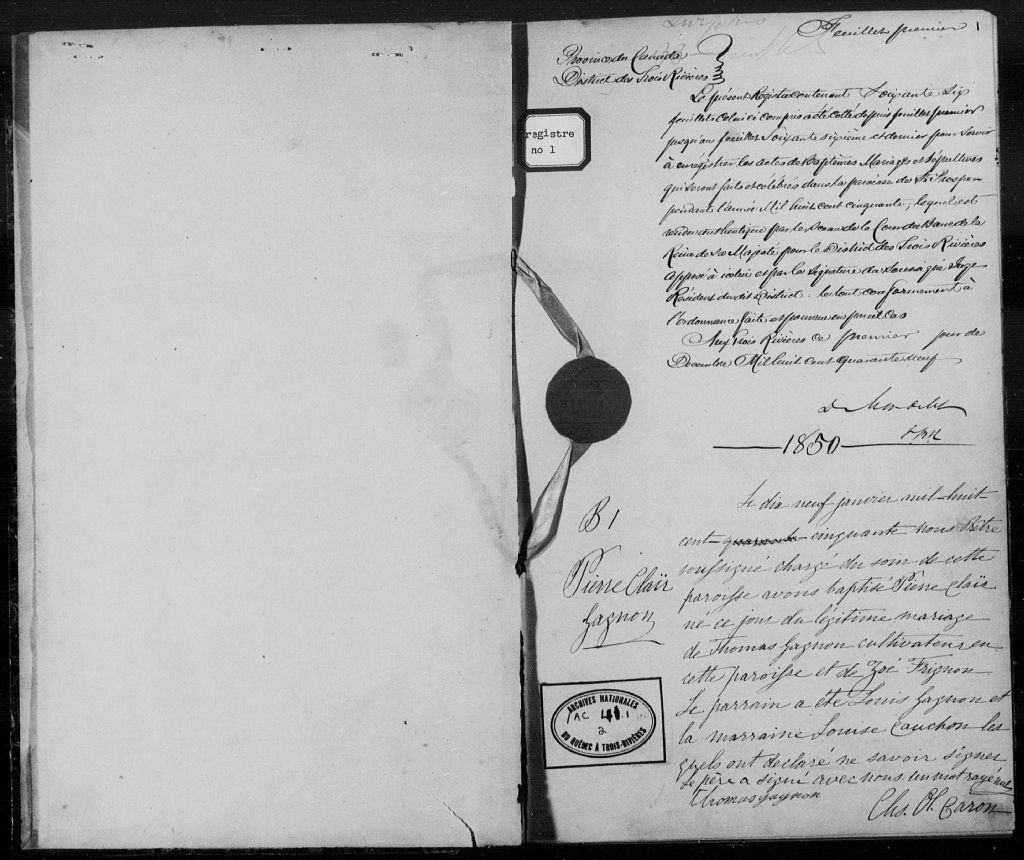 Feuillet premier 1
Province du Canada
District des Trois Rivières
Le présent Registre contenant Soixante Six
feuillets celui ci compris a été cotté depuis feuillet premier
jusqu'au feuillet Soixante sixième et dernier pour servir
à enrégistrer les actes de Baptêmes Mariages et sépultures
qui seront faits et célébrés dans la paroisse de St Prosper
pendant l'année Mil huit cent cinquante; lequel est
rendu authentique par le Sceau de la Cour du Banc de la
Reine de Sa Majesté pour le District des Trois Rivières
apposé à icelui et par la signature du Soussigné Juge
Résident du dit District: le tout conformement à
l'ordonnance faite et pourvue en pareil cas
Aux Trois Rivières ce premier jour de
Decembre Mil huit cent quarante neuf
registre
no 1
1850
B 1
Pierre Claïr
Gagnon
Le dix neuf janvier mil-huit-
cent-quarante-cinquante nous Prêtre
soussigné chargé du soin de cette
paroisse avons baptisé Pierre Claïr
né ce jour du légitime mariage
de Thomas Gagnon cultivateur en
cette paroisse et de Zoé Frignon
Le parrain a été Louis Gagnon et
la marraine Louise Cauchon les
quels ont declaré ne savoir signer
Le père a signé avec nous un mot rayé nul
Thomas gagnon
Chs. Ol. Caron
ARCHIVES NATIONALES
AC
2
DU QUÉBEC À TROIS-RIVIÈRES